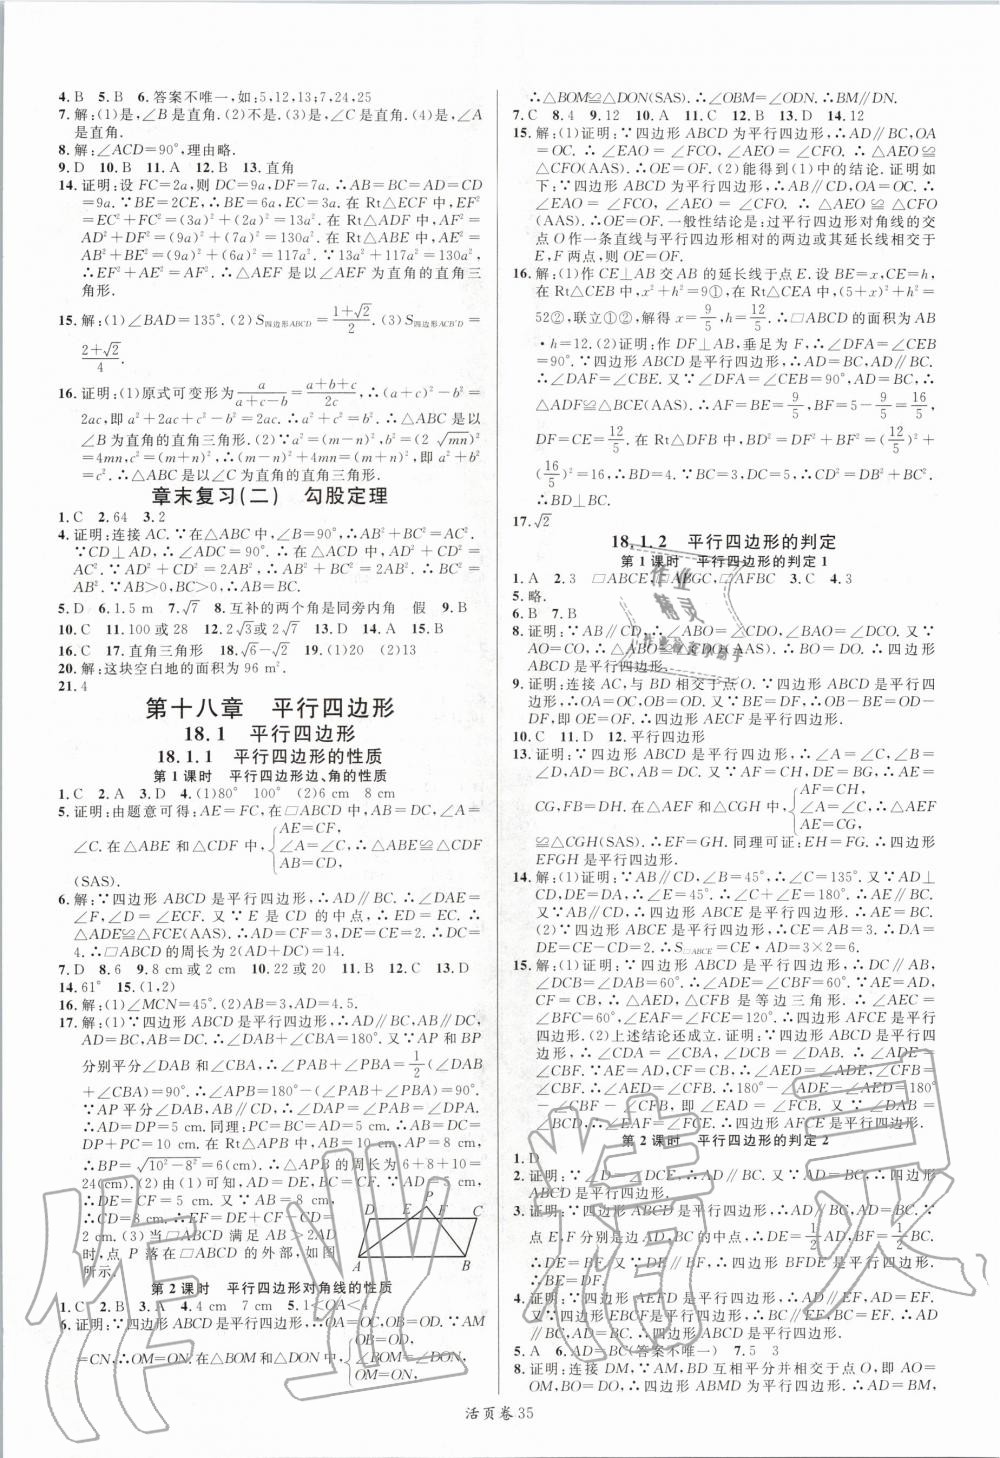 4. B　5. B　6. 答案不唯一,如:5,12,13;7,24,25
7. 解:(1)是,∠B是直角.(2)不是.(3)是,∠C是直角.(4)是,∠A
是直角.
8. 解:∠ACD=90°,理由略.
9. D　10. B　11. A　12. B　13. 直角
14. 证明:设 FC=2a,则 DC=9a,DF=7a.∴AB=BC=AD=CD
=9a.∵BE=2CE,∴BE=6a,EC=3a.在 Rt△ECF 中,EF²
=EC²+FC²=(3a)²+(2a)²=13a².在 Rt△ADF 中,AF²=
AD²+DF²=(9a)²+(7a)²=130a².在 Rt△ABE 中,AE²=
AB²+BE²=(9a)²+(6a)²=117a².∵13a²+117a²=130a²,
∴EF²+AE²=AF².∴△AEF是以∠AEF为直角的直角三
角形.
15. 解:(1)∠BAD=135°.(2)S四边形ABCD=(1+√2)/2.(3)S四边形ACB'D=
(2+√2)/4.
16. 证明:(1)原式可变形为a/(a+c-b)=(a+b+c)/2c,∴(a+c)²-b²=
2ac,即a²+2ac+c²-b²=2ac.∴a²+c²=b².∴△ABC是以
∠B为直角的直角三角形.(2)∵a²=(m-n)²,b²=(2√mn)²
=4mn,c²=(m+n)²,(m-n)²+4mn=(m+n)²,即a²+b²
=c².∴△ABC是以∠C为直角的直角三角形.
章末复习(二)　勾股定理
1. C　2. 64　3. 2
4. 证明:连接 AC.∵在△ABC 中,∠B=90°,∴AB²+BC²=AC².
∵CD⊥AD,∴∠ADC=90°.∴AD²+CD²=AC².∵AD²+
CD²=2AB²,∴AB²+BC²=2AB².∴BC²=AB².
∵AB>0,BC>0,∴AB=BC.
5. D　6. 1.5 m　7. √7　8. 互补的两个角是同旁内角　假　9. B
10. C　11. 100 或 28　12. 2√3或2√7　13. B　14. A　15. B
16. C　17. 直角三角形　18. √6-√2　19. (1)20　(2)13
20. 解:这块空白地的面积为 96 m².
21. 4
第十八章　平行四边形
18.1　平行四边形
18.1.1　平行四边形的性质
第 1 课时　平行四边形边、角的性质
1. C　2. A　3. D　4. (1)80°　100°　(2)6 cm　8 cm
5. 证明:由题意可得:AE=FC,在▱ABCD 中,AB=CD,∠A=
∠C.在△ABE 和△CDF 中,{AE=CF,∠A=∠C,AB=CD,∴△ABE≌△CDF
(SAS).
6. 解:∵四边形 ABCD 是平行四边形,∴AD∥BC.∴∠DAE=
∠F,∠D=∠ECF.又∵E 是 CD 的中点,∴ED=EC.∴
△ADE≌△FCE(AAS).∴AD=CF=3,DE=CE=2.∴DC=
4.∴▱ABCD的周长为2(AD+DC)=14.
7. D　8. 6　9. 8 cm或2 cm　10. 22或20　11. B　12. C　13. D
14. 61°　15. (1,2)
16. 解:(1)∠MCN=45°.(2)AB=3,AD=4.5.
17. 解:(1)∵四边形 ABCD 是平行四边形,∴AD∥BC,AB∥DC,
AD=BC,AB=DC.∴∠DAB+∠CBA=180°.又∵AP和BP
分别平分∠DAB 和∠CBA,∴∠PAB+∠PBA=1/2(∠DAB
+∠CBA)=90°.∴∠APB=180°-(∠PAB+∠PBA)=90°.
∵AP 平分∠DAB,AB∥CD,∴∠DAP=∠PAB=∠DPA.
∴AD=DP=5 cm.同理:PC=BC=AD=5 cm.∴AB=DC=
DP+PC=10 cm.在 Rt△APB 中,AB=10 cm,AP=8 cm,
∴BP=√(10²-8²)=6(cm).∴△APB的周长为6+8+10=
24(cm).(2)由(1)可知,AD=DE=5 cm,BC=CF=5 cm,
∴DE=CF=5 cm.又∵AB=CD=8 cm,
∴CD=8 cm.∴EF=DE+CF-CD=
2 cm.(3)当▱ABCD 满足 AB>2AD
时,点 P 落在▱ABCD 的外部,如图
所示.
D　E　P　F　C
A　B
第 2 课时　平行四边形对角线的性质
1. C　2. B　3. A　4. 4 cm　7 cm　5. 1<OA<4
6. 证明:∵四边形ABCD是平行四边形,∴OA=OC,OB=OD.∵AM
=CN,∴OM=ON.在△BOM和△DON中,{OB=OD,∠BOM=∠DON,OM=ON,
∴△BOM≌△DON(SAS).∴∠OBM=∠ODN.∴BM∥DN.
7. C　8. 4　9. 12　10. A　11. C　12. B　13. D　14. 12
15. 解:(1)证明:∵四边形 ABCD 为平行四边形,∴AD∥BC,OA
=OC.∴∠EAO=∠FCO,∠AEO=∠CFO.∴△AEO≌
△CFO(AAS).∴OE=OF.(2)能得到(1)中的结论.证明如
下:∵四边形 ABCD 为平行四边形,∴AD∥BC,OA=OC.∴
∠EAO=∠FCO,∠AEO=∠CFO.∴△AEO≌△CFO
(AAS).∴OE=OF.一般性结论是:过平行四边形对角线的交
点 O 作一条直线与平行四边形相对的两边或其延长线相交于
E,F两点,则 OE=OF.
16. 解:(1)作 CE⊥AB 交 AB 的延长线于点 E.设 BE=x,CE=h,
在 Rt△CEB 中,x²+h²=9①,在 Rt△CEA 中,(5+x)²+h²=
52②,联立①②,解得 x=9/5,h=12/5.∴▱ABCD 的面积为 AB
·h=12.(2)证明:作 DF⊥AB,垂足为 F,∴∠DFA=∠CEB
=90°.∵四边形 ABCD 是平行四边形,∴AD=BC,AD∥BC.
∴∠DAF=∠CBE.又∵∠DFA=∠CEB=90°,AD=BC,∴
△ADF≌△BCE(AAS).∴AF=BE=9/5,BF=5-9/5=16/5,
DF=CE=12/5.在 Rt△DFB 中,BD²=DF²+BF²=(12/5)²+
(16/5)²=16,∴BD=4.∵BC=3,CD=5,∴CD²=DB²+BC².
∴BD⊥BC.
17. √2
18.1.2　平行四边形的判定
第 1 课时　平行四边形的判定 1
1. A　2. 3　▱ABCE,▱ABGC,▱AFBC　3. C　4. 3
5. 略.
6. B　7. B
8. 证明:∵AB∥CD,∴∠ABO=∠CDO.
9. 证明:连接 AC,与 BD 相交于点 O.∵四边形 ABCD 是平行四
边形,∴OA=OC,OB=OD.又∵BE=DF,∴OB-BE=OD-
DF,即OE=OF.∴四边形 AECF 是平行四边形.
10. C　11. D　12. 平行四边形
13. 证明:∵四边形 ABCD 是平行四边形,∴∠A=∠C,∠B=
∠D,AB=CD,BC=AD.又∵AF=CH,DE=BG,∴AE=
CG,FB=DH.在△AEF 和△CGH 中,{AF=CH,∠A=∠C,AE=CG,∴△AEF
≌△CGH(SAS).∴EF=GH.同理可证:FG=HE.∴四边形
EFGH 是平行四边形.
14. 解:(1)证明:∵AB∥CD,∠B=45°,∴∠C=135°.又∵AD⊥
CD,DE=DA,∴∠E=45°.∴∠C+∠E=180°.∴AE∥BC.
又∵AB∥CE,∴四边形 ABCE 是平行四边形.
(2)∵四边形 ABCE 是平行四边形,∴CE=AB=3.∴DA=DE
=CE-CD=2.∴S▱ABCE=CE·AD=3×2=6.
15. 解:(1)证明:∵四边形 ABCD 是平行四边形,∴DC∥AB,
∠DCB=∠DAB=60°.∴∠ADE=∠CBF=60°.∵AE=AD,
CF=CB,∴△AED,△CFB 是等边三角形.∴∠AEC=
∠BFC=60°,∠EAF=∠FCE=120°.∴四边形AFCE是平行
四边形.(2)上述结论还成立.证明:∵四边形 ABCD 是平行四边
形,∴∠CDA=∠CBA,∠DCB=∠DAB.∴∠ADE=
∠CBF.∵AE=AD,CF=CB,∴∠AED=∠ADE,∠CFB=
∠CBF.∴∠AED=∠CFB.∴180°-∠ADE-∠AED=180°
-∠CBF-∠CFB,即∠EAD=∠FCB.又∵∠DAB=
∠BCD,∴∠EAF=∠FCE.∴四边形AFCE是平行四边形.
第 2 课时　平行四边形的判定 2
1. D
2. 证明:∵∠1=∠2,∴AD∥BC.又∵AD=BC,∴四边形
ABCD是平行四边形.
3. 证明:∵四边形 ABCD 是平行四边形,∴AD∥BC,AD=BC.∵
点 E,F分别是边 AD,BC 的中点,∴DE=1/2AD,BF=1/2BC.
∴DE=BF.又∵DE∥BF,∴四边形 BFDE 是平行四边形.
4. 证明:∵四边形 AEFD 是平行四边形,∴AD∥EF,AD=EF.
又∵四边形EBCF是平行四边形,∴BC∥EF,BC=EF.∴AD
∥BC,AD=BC.∴四边形 ABCD 是平行四边形.
5. A　6. AD=BC(答案不唯一)　7. 5　3
8. 证明:连接 DM,∵AM,BD 互相平分并相交于点O,∴AO=
OM,BO=OD.∴四边形 ABMD 为平行四边形.∴AD=BM,
活页卷 35
作业精灵